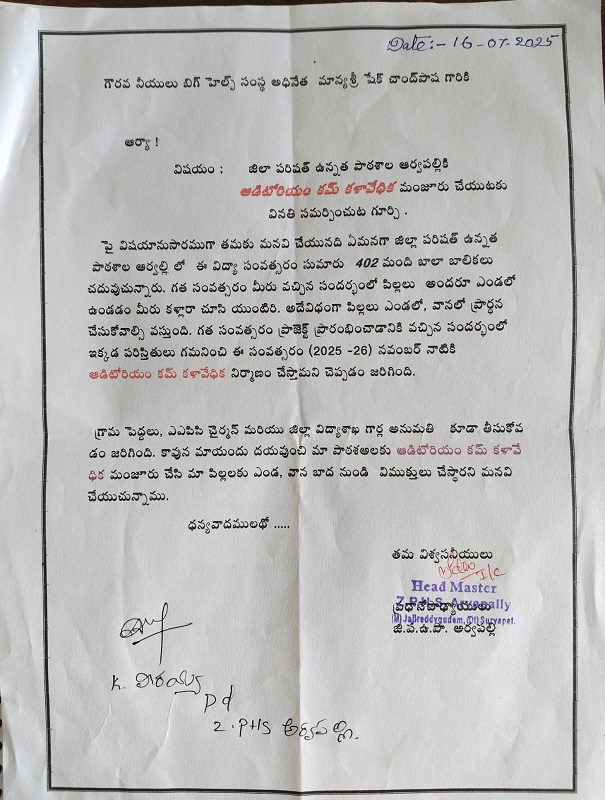 Date:- 16-07-2025
గౌరవ నీయులు బిగ్ హెల్ప్ సంస్థ అధినేత మాన్యశ్రీ షేక్ చాంద్‌పాష గారికి
ఆర్యా !
విషయం ; జిలా పరిషత్ ఉన్నత పాఠశాల ఆర్వపల్లికి
ఆడిటోరియం కమ్ కళావేధిక మంజూరు చేయుటకు
వినతి సమర్పించుట గూర్చి .
పై విషయానుసారముగా తమకు మనవి చేయునది ఏమనగా జిల్లా పరిషత్ ఉన్నత
పాఠశాల ఆర్వల్లి లో ఈ విద్యా సంవత్సరం సుమారు 402 మంది బాలా బాలికలు
చదువుచున్నారు. గత సంవత్సరం మీరు వచ్చిన సందర్భంలో పిల్లలు అందరూ ఎండలో
ఉండడం మీరు కళ్లారా చూసి యుంటిరి. అదేవిధంగా పిల్లలు ఎండలో, వానలో ప్రార్ధన
చేసుకోవాల్సి వస్తుంది. గత సంవత్సరం ప్రాజెక్ట్ ప్రారంభించాడానికి వచ్చిన సందర్భంలో
ఇక్కడ పరిస్తితులు గమనించి ఈ సంవత్సరం (2025 -26) నవంబర్ నాటికి
ఆడిటోరియం కమ్ కళావేధిక నిర్మాణం చేస్తామని చెప్పడం జరిగింది.
గ్రామ పెద్దలు, ఎఎపిసి చైర్మన్ మరియు జిల్లా విద్యాశాఖ గార్ల అనుమతి కూడా తీసుకోవ
డం జరిగింది. కావున మాయందు దయవుంచి మా పాఠశఅలకు ఆడిటోరియం కమ్ కళావే
ధిక మంజూరు చేసి మా పిల్లలకు ఎండ, వాన బాద నుండి విముక్తులు చేస్తారని మనవి
చేయుచున్నాము.
ధన్యవాదములథో .....
తమ విశ్వసనీయులు
I/c
Head Master
Z.P.H.S. Arvapally
ప్రధానోపాధ్యాయులు
(M) Jajireddygudem, (Dt) Suryapet.
జి.ప.ఉ.పా. అర్వపల్లి
K. వీరయ్య
Pd
Z.PHS అర్వపల్లి.